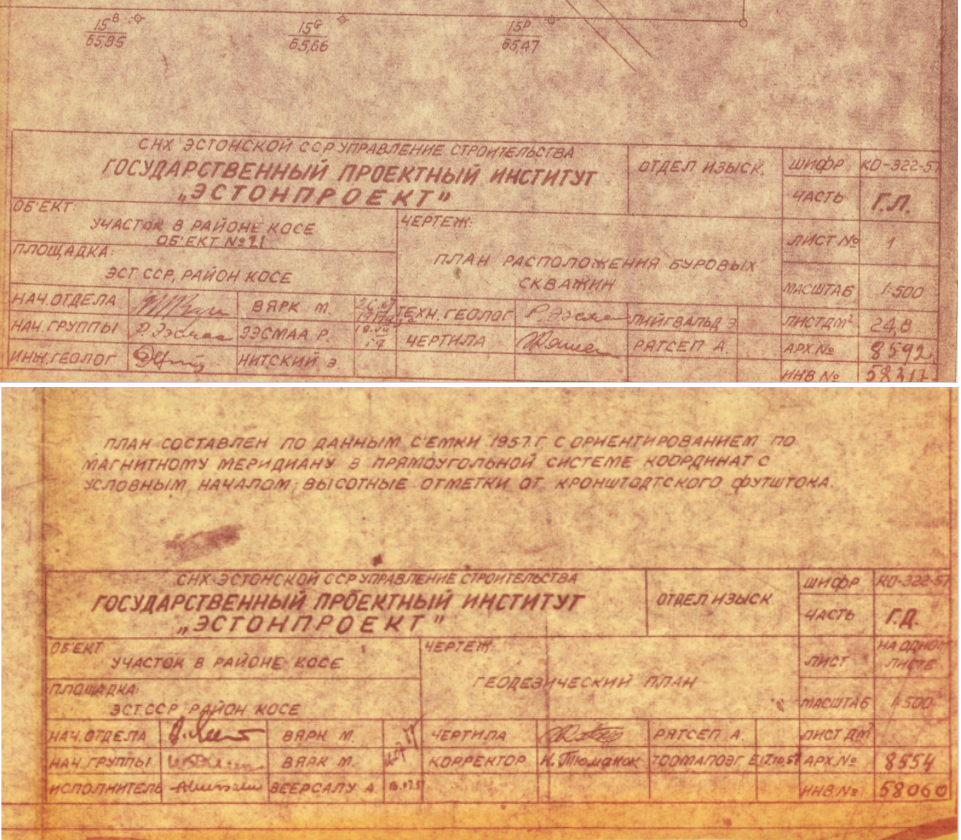 15ᴮ
65,95
15ᴳ
65,66
15ᴰ
65,47
СНХ ЭСТОНСКОЙ ССР УПРАВЛЕНИЕ СТРОИТЕЛЬСТВА
ГОСУДАРСТВЕННЫЙ ПРОЕКТНЫЙ ИНСТИТУТ
„ЭСТОНПРОЕКТ"
ОТДЕЛ ИЗЫСК.
ШИФР КО-322-57
ЧАСТЬ Г.Л.
ОБ'ЕКТ:
УЧАСТОК В РАЙОНЕ КОСЕ
ОБ'ЕКТ №21
ЧЕРТЕЖ:
ПЛАН РАСПОЛОЖЕНИЯ БУРОВЫХ
СКВАЖИН
ЛИСТ № 1
ПЛОЩАДКА:
ЭСТ.ССР, РАЙОН КОСЕ
МАСШТАБ 1:500
НАЧ.ОТДЕЛА ВЯРК М. ТЕХН.ГЕОЛОГ ЛИЙГВАЛЬД Э. ЛИСТ ДМ² 24,8
НАЧ.ГРУППЫ Р.Ээсмаа ЭЭСМАА Р. ЧЕРТИЛА РЯТСЕП А. АРХ.№ 8592
ИНЖ.ГЕОЛОГ НИТСКИЙ Э. ИНВ.№ 58317
ПЛАН СОСТАВЛЕН ПО ДАННЫМ С'ЕМКИ 1957.Г С ОРИЕНТИРОВАНИЕМ ПО
МАГНИТНОМУ МЕРИДИАНУ В ПРЯМОУГОЛЬНОЙ СИСТЕМЕ КООРДИНАТ С
УСЛОВНЫМ НАЧАЛОМ, ВЫСОТНЫЕ ОТМЕТКИ ОТ КРОНШТОДТСКОГО ФУТШТОКА.
СНХ ЭСТОНСКОЙ ССР УПРАВЛЕНИЕ СТРОИТЕЛЬСТВА
ГОСУДАРСТВЕННЫЙ ПРОЕКТНЫЙ ИНСТИТУТ
„ЭСТОНПРОЕКТ"
ОТДЕЛ ИЗЫСК
ШИФР КО-322-57
ЧАСТЬ Г.Д.
ОБ'ЕКТ
УЧАСТОК В РАЙОНЕ КОСЕ
ЧЕРТЕЖ:
ГЕОДЕЗИЧЕСКИЙ ПЛАН
ЛИСТ НА ОДНОМ
ЛИСТЕ
ПЛОЩАДКА:
ЭСТ.ССР РАЙОН КОСЕ
МАСШТАБ 1:500
НАЧ.ОТДЕЛА ВЯРК М. ЧЕРТИЛА РЯТСЕП А. ЛИСТ ДМ²
НАЧ.ГРУППЫ ВЯРК М. КОРРЕКТОР АРХ.№ 8554
ИСПОЛНИТЕЛЬ ВЕЕРСАЛУ А. ИНВ.№ 58060